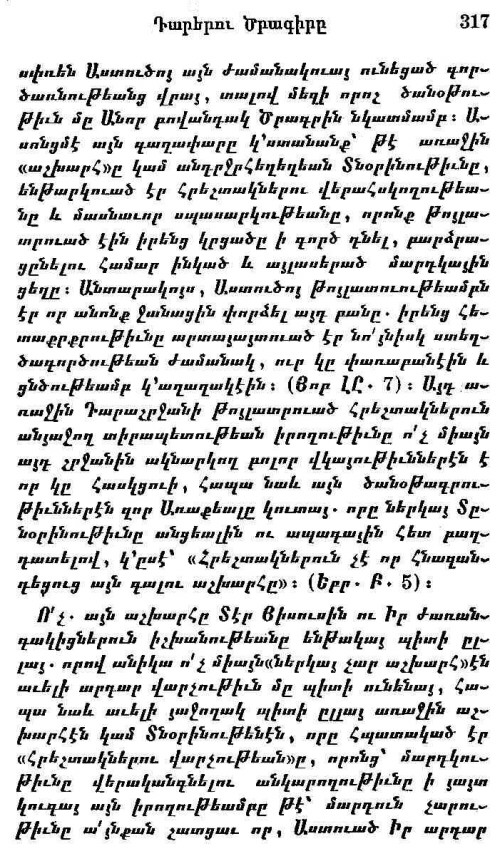 Դարերու Ծրագիրը 317
սփռեն Աստուծոյ այն ժամանակուայ ունեցած գոր-
ծառնութեանց վրայ, տալով մեզի որոշ ծանօթու-
թիւն մը Անոր բովանդակ Ծրագրին նկատմամբ։ Ա-
սոնցմէ այն գաղափարը կ՚ստանանք՝ թէ առաջին
«աշխարհ»ը կամ անդրջրհեղեղեան Տնօրինութիւնը,
ենթարկուած էր հրեշտակներու վերահսկողութեա-
նը և մասնաւոր սպասարկութեանը, որոնք թոյլա-
տրուած էին իրենց կրցածը ի գործ դնել, բարձրա-
ցընելու համար ինկած և այլասերած մարդկային
ցեղը։ Անտարակոյս, Աստուծոյ թոյլատուութեամբն
էր որ անոնք ջանացին փորձել այդ բանը. իրենց հե-
տաքրքրութիւնը արտայայտուած էր նո՛յնիսկ ստեղ-
ծագործութեան ժամանակ, ուր կը փառաբանէին և
ցնծութեամբ կ՚աղաղակէին։ (Յոբ ԼԸ. 7)։ Այդ ա-
ռաջին Դարաշրջանի թոյլատրուած հրեշտակներուն
անյաջող տիրապետութեան իրողութիւնը ո՛չ միայն
այդ շրջանին ակնարկող բոլոր վկայութիւններէն է
որ կը հասկցուի, հապա նաև այն ծանօթագրու-
թիւններէն զոր Առաքեալը կուտայ. որը ներկայ Տը-
նօրինութիւնը անցեալին ու ապագային հետ բաղ-
դատելով, կ՚ըսէ՝ «Հրեշտակներուն չէ որ հնազան-
դեցուց այն գալու աշխարհը»։ (Եբր. Բ. 5)։
Ո՛չ. այն աշխարհը Տէր Յիսուսին ու Իր ժառան-
գակիցներուն իշխանութեանը ենթակայ պիտի ըլ-
լայ. որով անիկա ո՛չ միայն«ներկայ չար աշխարհ»էն
աւելի արդար վարչութիւն մը պիտի ունենայ, հա-
պա նաև աւելի յաջողակ պիտի ըլլայ առաջին աշ-
խարհէն կամ Տնօրինութենէն, որը հպատակած էր
«հրեշտակներու վարչութեան»ը, որոնց՝ մարդկու-
թիւնը վերականգնելու անկարողութիւնը ի յայտ
կուգայ այն իրողութեամբը թէ՝ մարդուն չարու-
թիւնը ա՛յնքան շատցաւ որ, Աստուած Իր արդար